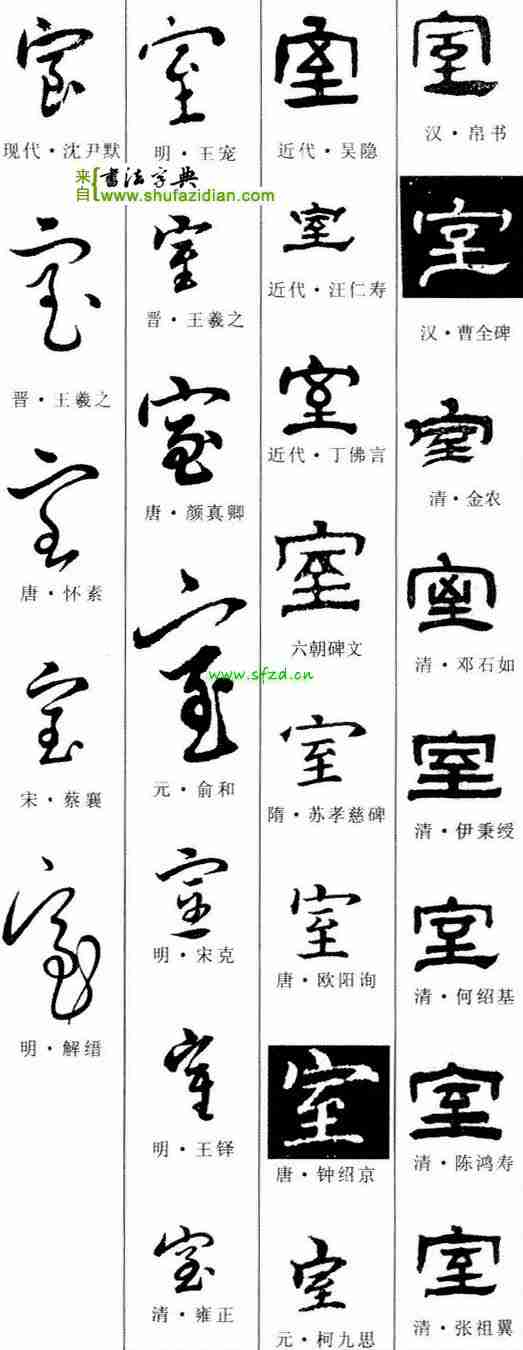 室
汉·帛书
室
汉·曹全碑
室
清·金农
室
清·邓石如
室
清·伊秉绶
室
清·何绍基
室
清·陈鸿寿
室
清·张祖翼
室
近代·吴隐
室
近代·汪仁寿
室
近代·丁佛言
室
六朝碑文
室
隋·苏孝慈碑
室
唐·欧阳询
室
唐·钟绍京
室
元·柯九思
室
明·王宠
室
晋·王羲之
室
唐·颜真卿
室
元·俞和
室
明·宋克
室
明·王铎
室
清·雍正
室
现代·沈尹默
室
晋·王羲之
室
唐·怀素
室
宋·蔡襄
室
明·解缙
来自
書法字典
www.shufazidian.com
www.sfzd.cn